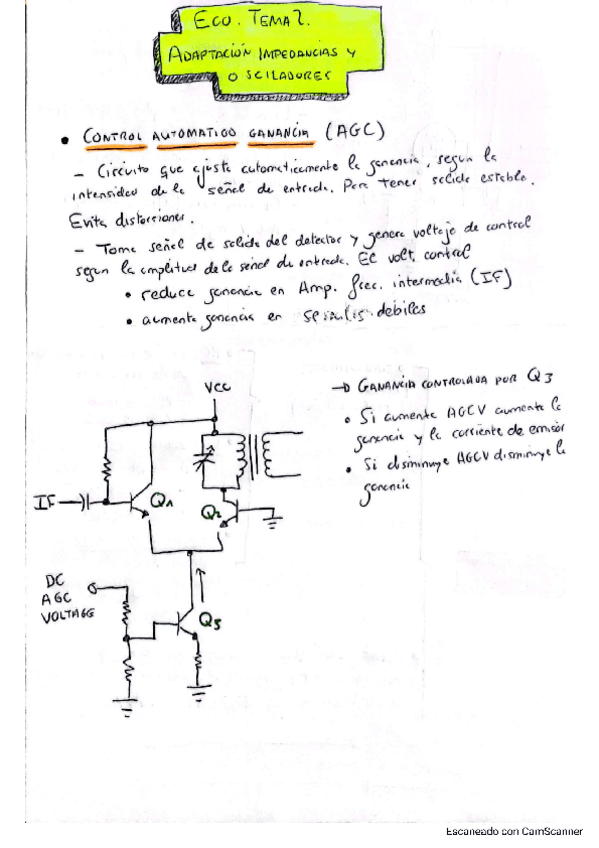 ECO. TEMA 2.
ADAPTACIÓN IMPEDANCIAS Y
OSCILADORES
• CONTROL AUTOMATICO GANANCIA (AGC)
- Circuito que ajusta automaticamente la ganancia, segun la
intensidad de la señal de entrada. Para tener salida estable.
Evita distorsiones.
- Toma señal de salida del detector y genera voltaje de control
segun la amplitud de la señal de entrada. El volt. control
• reduce ganancia en Amp. frec. intermedia (IF)
• aumenta ganancia en señales debiles
VCC
→ GANANCIA CONTROLADA POR Q3
• Si aumenta AGCV aumenta la
ganancia y la corriente de emisor
• Si disminuye AGCV disminuye la
ganancia
IF
Q1
Q2
DC
AGC
VOLTAGE
Q3
Escaneado con CamScanner